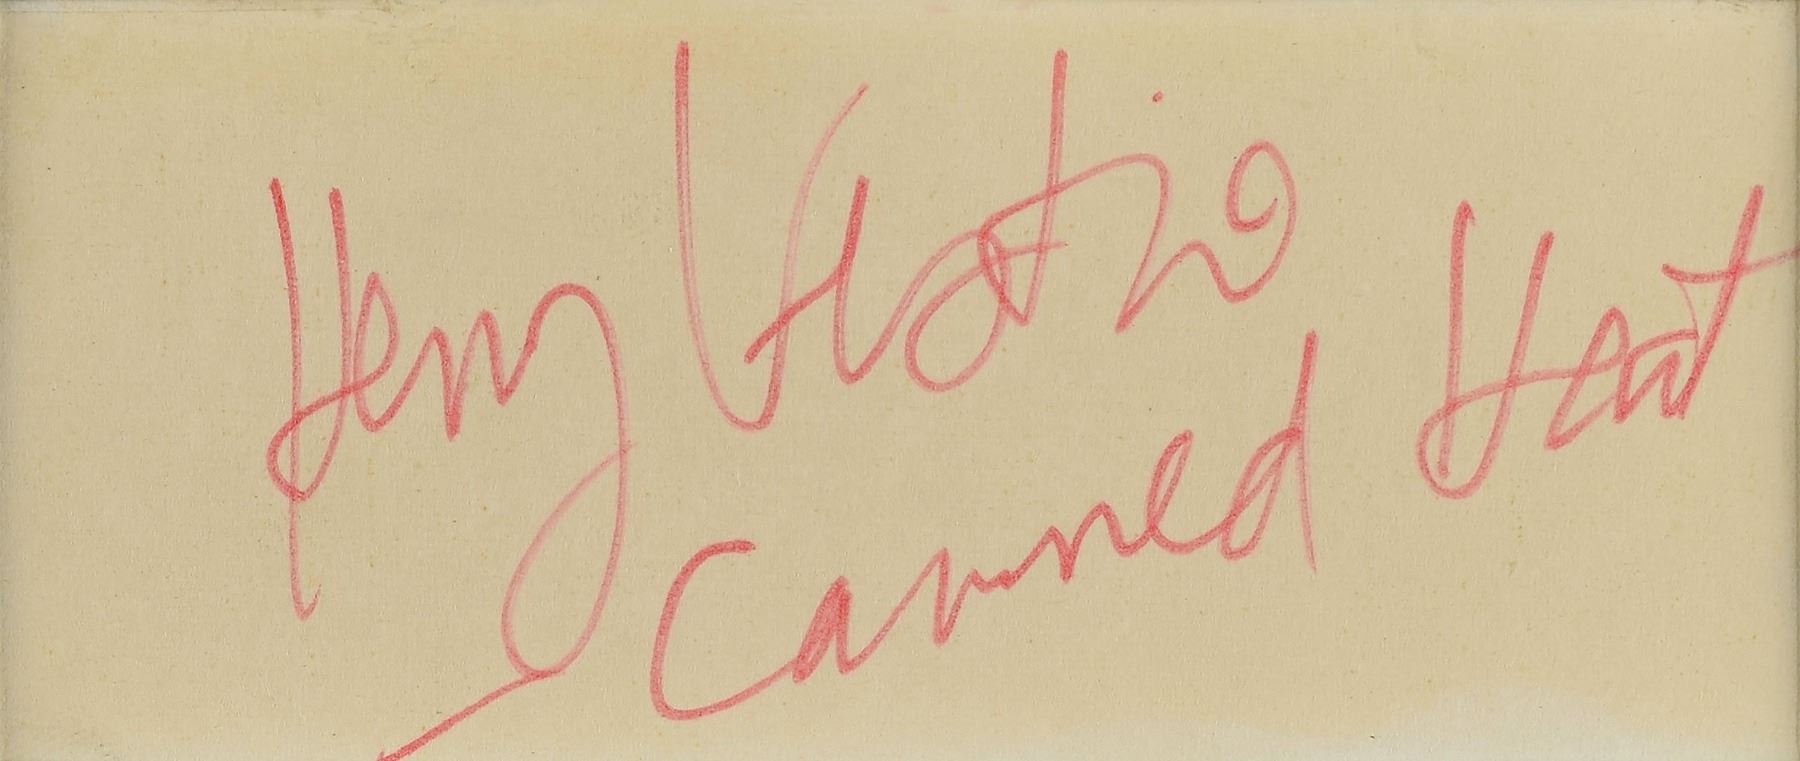 Henry Vestine
Canned Heat